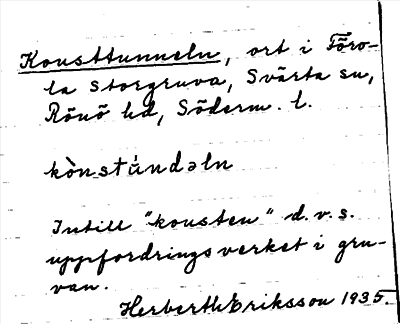 Konsttunneln, ort i Föro-
la Storgruva, Svärta sn,
Rönö hd, Söderm. l.
kònstúndəln
Intill "konsten" d.v.s.
uppfordringsverket i gru-
van.
Herbert Eriksson 1935.